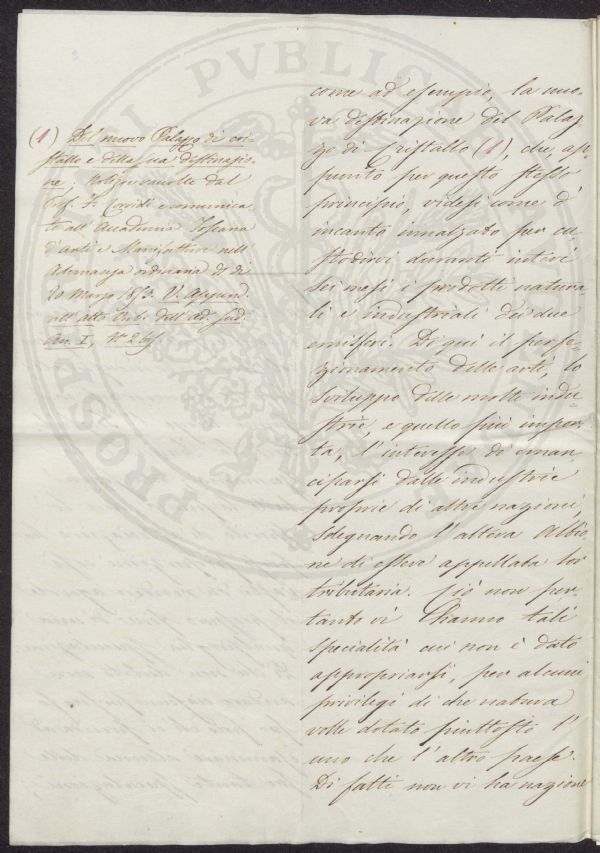 (1) Del nuovo Palazzo di cri-
stallo e della sua destinazio-
ne: Notizie raccolte dal
Prof. F. Corridi e comunica
te all'Accademia Toscana
d'Arti e Manifatture nell'
Adunanza ordinaria de' di
20 Marzo 1853. V. Append.
nell'alto
An. I, N.º 26
come ad esempio, la nuo-
va destinazione del Palaz
zo di Cristallo (1), che, ap-
punto per questo stesso
principio, videsi come d'
incanto innalzato per cu
stodirvi durante intieri
sei mesi i prodotti natura-
li e industriali dei due
emisferi. Di qui il perfe-
zionamento delle arti, lo
sviluppo delle molte indu-
strie, e quello più impor
ta, l'interesse di eman-
ciparsi dalle industrie
proprie di altre nazioni,
sdegnando l'altera Albio-
ne di essere appellata lor
tributaria. Ciò non per-
tanto vi hanno tali
specialità cui non è dato
appropriarsi, per alcuni
privilegi di che natura
volle dotato piuttosto l'
uno che l'altro paese.
Di fatti non vi ha nazione
PROSPERITATI PUBLICAE